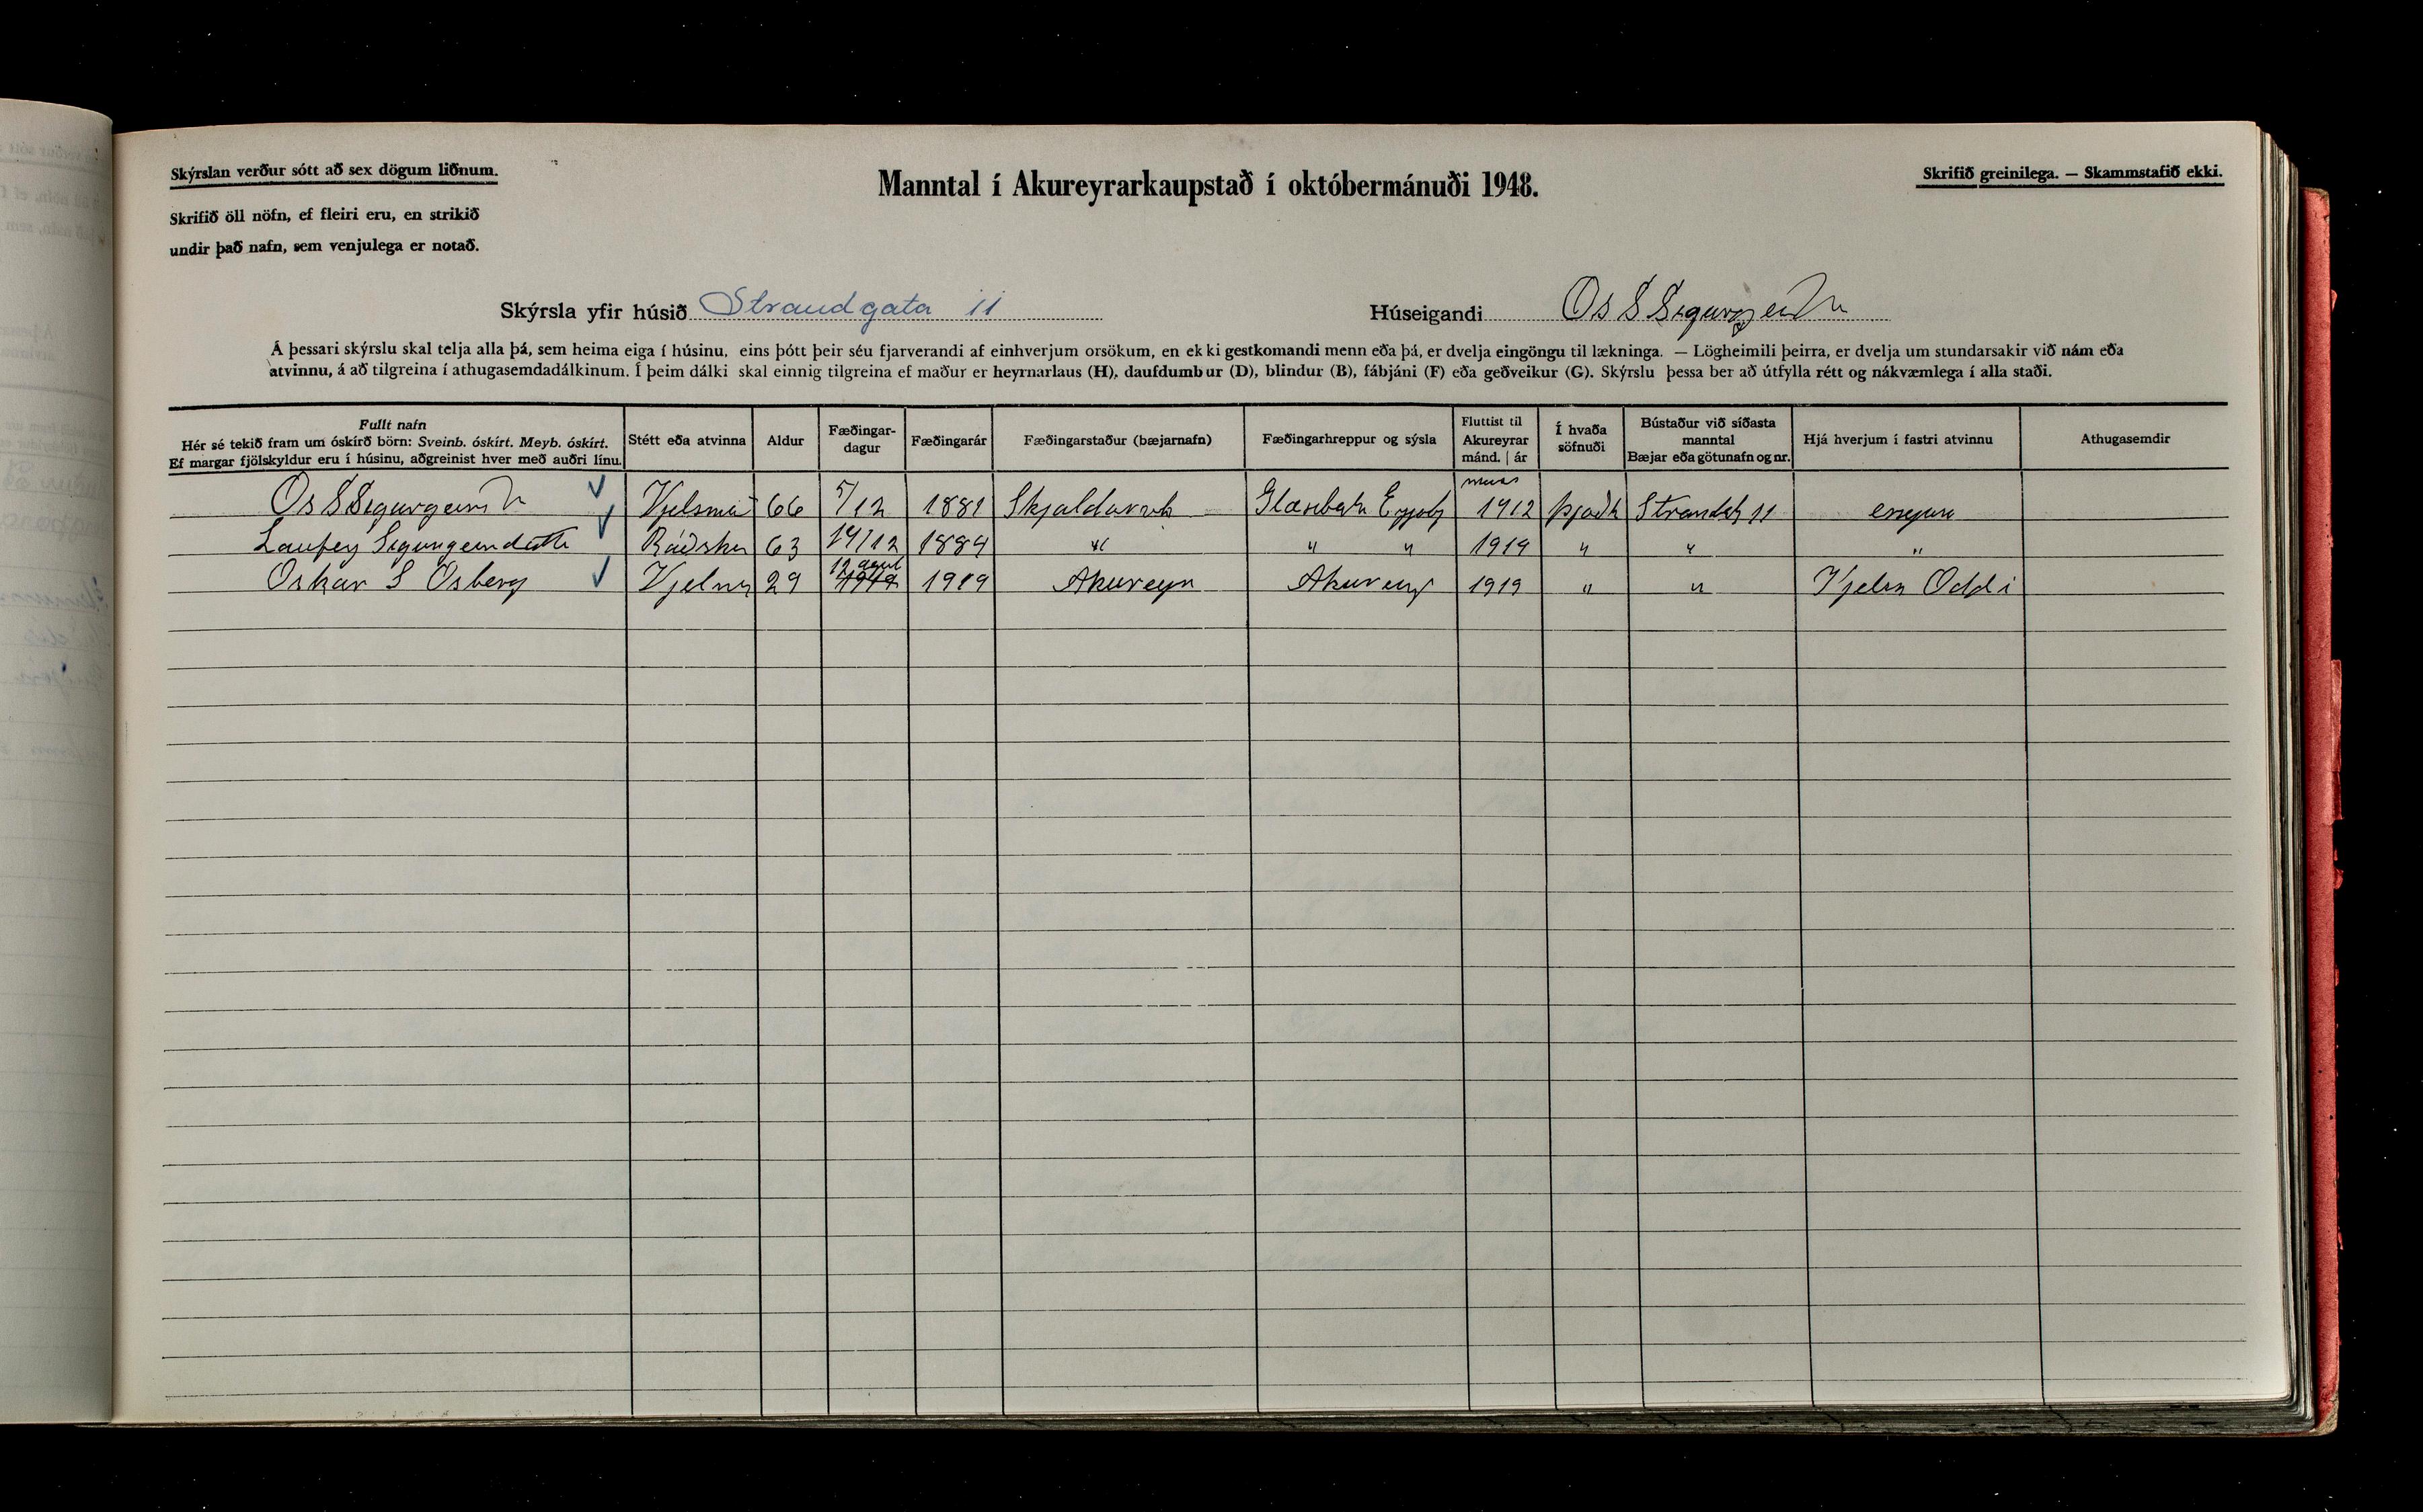 Skýrslan verður sótt að sex dögum liðnum.
Manntal í Akureyrarkaupstað í októbermánuði 1948.
Skrifið greinilega. — Skammstafið ekki.
Skrifið öll nöfn, ef fleiri eru, en strikið
undir það nafn, sem venjulega er notað.
Skýrsla yfir húsið Strandgata 11
Húseigandi Ós S Sigurgeirs
Á þessari skýrslu skal telja alla þá, sem heima eiga í húsinu, eins þótt þeir séu fjarverandi af einhverjum orsökum, en ekki gestkomandi menn eða þá, er dvelja eingöngu til lækninga. — Lögheimili þeirra, er dvelja um stundarsakir við nám eða
atvinnu, á að tilgreina í athugasemdadálkinum. Í þeim dálki skal einnig tilgreina ef maður er heyrnarlaus (H), daufdumbur (D), blindur (B), fábjáni (F) eða geðveikur (G). Skýrslu þessa ber að útfylla rétt og nákvæmlega í alla staði.
Fullt nafn
Hér sé tekið fram um óskírð börn: Sveinb. óskírt. Meyb. óskírt.
Ef margar fjölskyldur eru í húsinu, aðgreinist hver með auðri línu.
Stétt eða atvinna
Aldur
Fæðingar-
dagur
Fæðingarár
Fæðingarstaður (bæjarnafn)
Fæðingarhreppur og sýsla
Fluttist til
Akureyrar
mánd. | ár
Í hvaða
söfnuði
Bústaður við síðasta
manntal
Bæjar eða götunafn og nr.
Hjá hverjum í fastri atvinnu
Athugasemdir
Ós S Sigurgeirs 66 5/12 1881 Skjaldarvík 1912 Þjóðk Strandg 11 engum
Laufey Sigurgeirsdóttir Ráðsko 63 14/12 1884 " " " 1919 " " "
Oskar S Ósberg 29 12 apríl 1919 Akureyri Akureyri 1919 " " Oddi